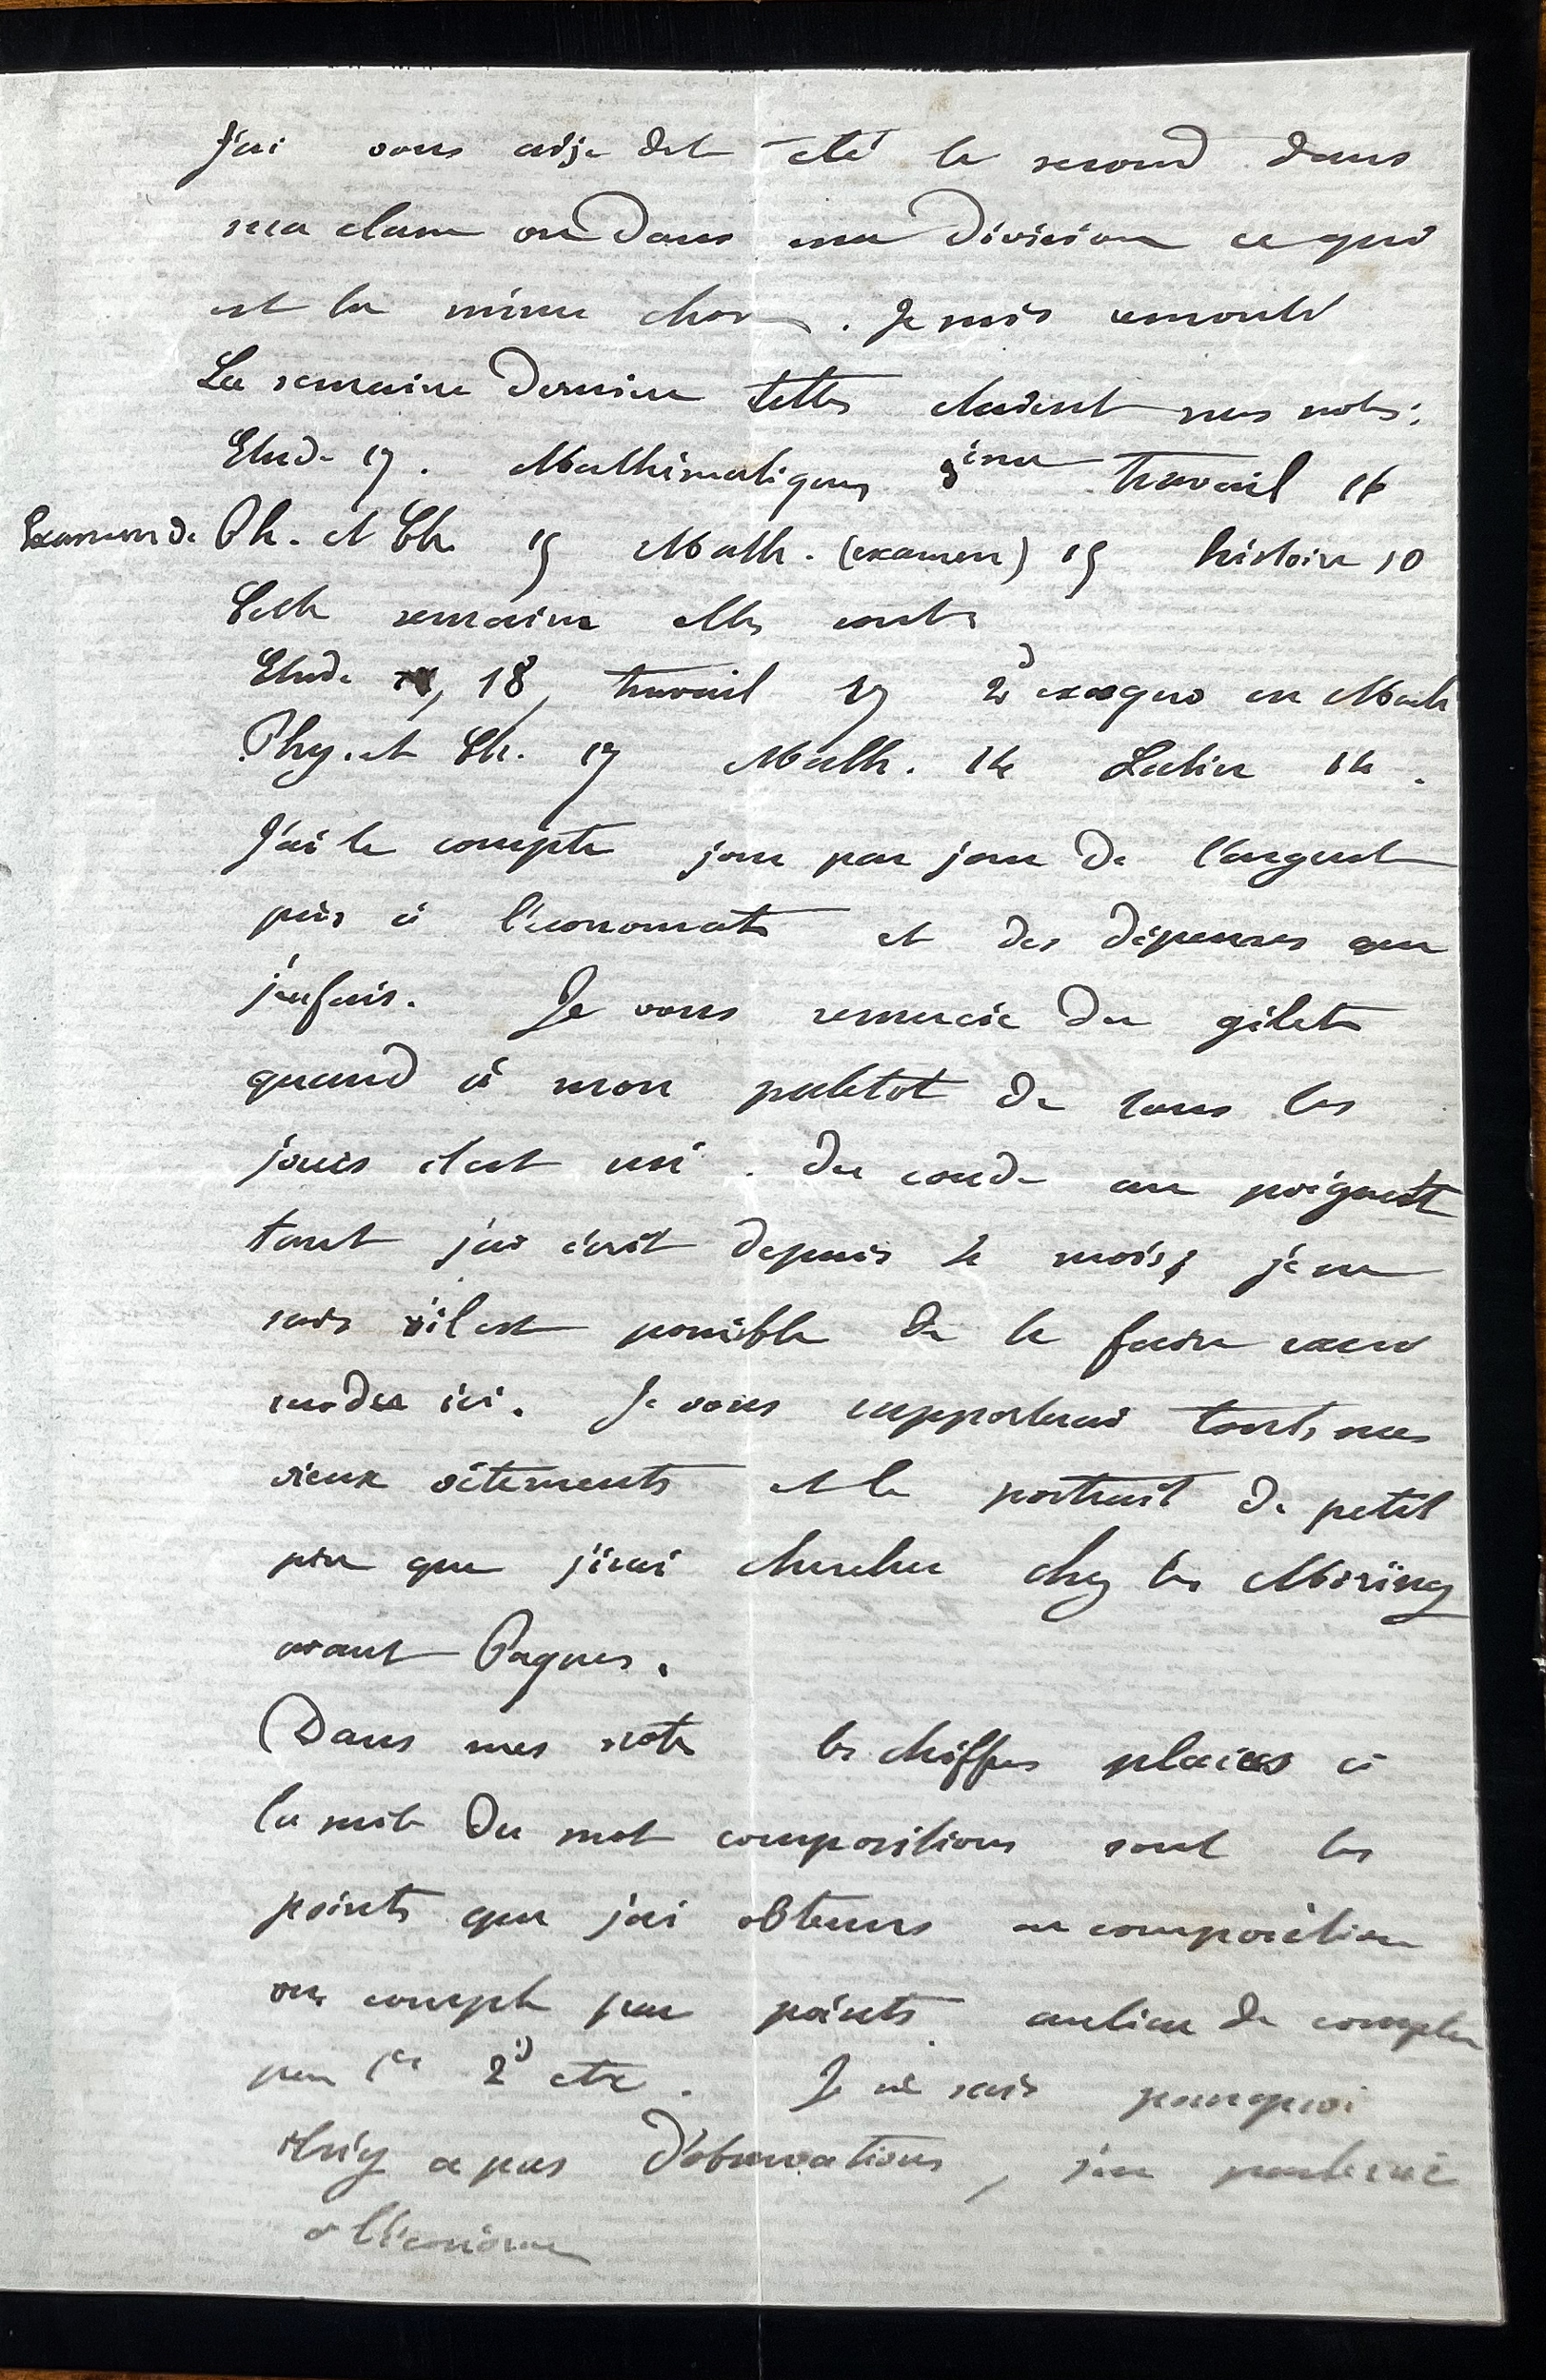 J'ai vous ai-je dit été le second dans
ma classe ou dans ma division ce qui
est la même chose. Je suis remonté
La semaine dernière telles étaient mes notes:
Etude 17. Mathématiques 3ème travail 16
Examen de Ph. et Ch. 15 Math. (examen) 15 histoire 10
Cette semaine elles sont:
Etude 18, travail 17 2d exæquo en Math
Phy. et Ch. 17 Math. 14 Latin 14.
J'ai le compte jour par jour de l'argent
pris à l'économat et des dépenses que
j'en fais. Je vous remercie du gilet
quand à mon paletot de tous les
jours il est usé. du coude au poignet
tant j'ai écrit depuis le mois, je ne
sais s'il est possible de le faire raccom
moder ici. Je vous rapporterai tous mes
vieux vêtements et le portrait de petit
père que j'irai chercher chez les
avant Pâques.
Dans mes notes les chiffres placés à
la suite du mot compositions sont les
points que j'ai obtenus en composition
on compte par points au lieu de compter
par 1er 2d etc. Je ne sais pourquoi
il n'y a pas d'observations, j'en parlerai
à l'économe